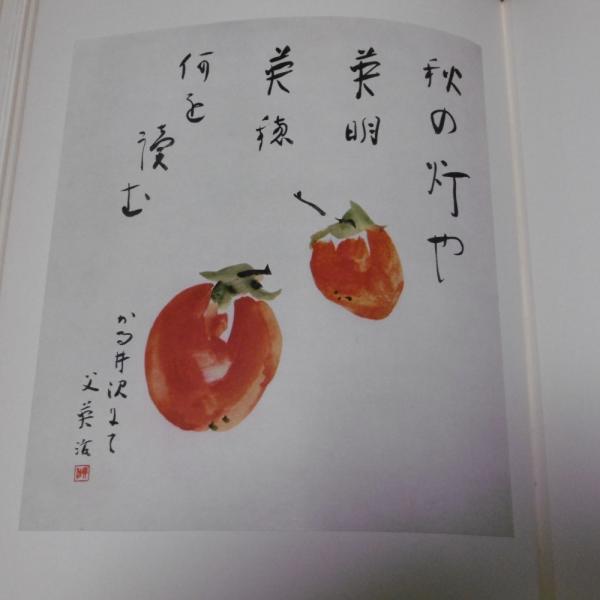 秋の灯や
英明
英穂
何を
読む
かる井沢にて
父英治